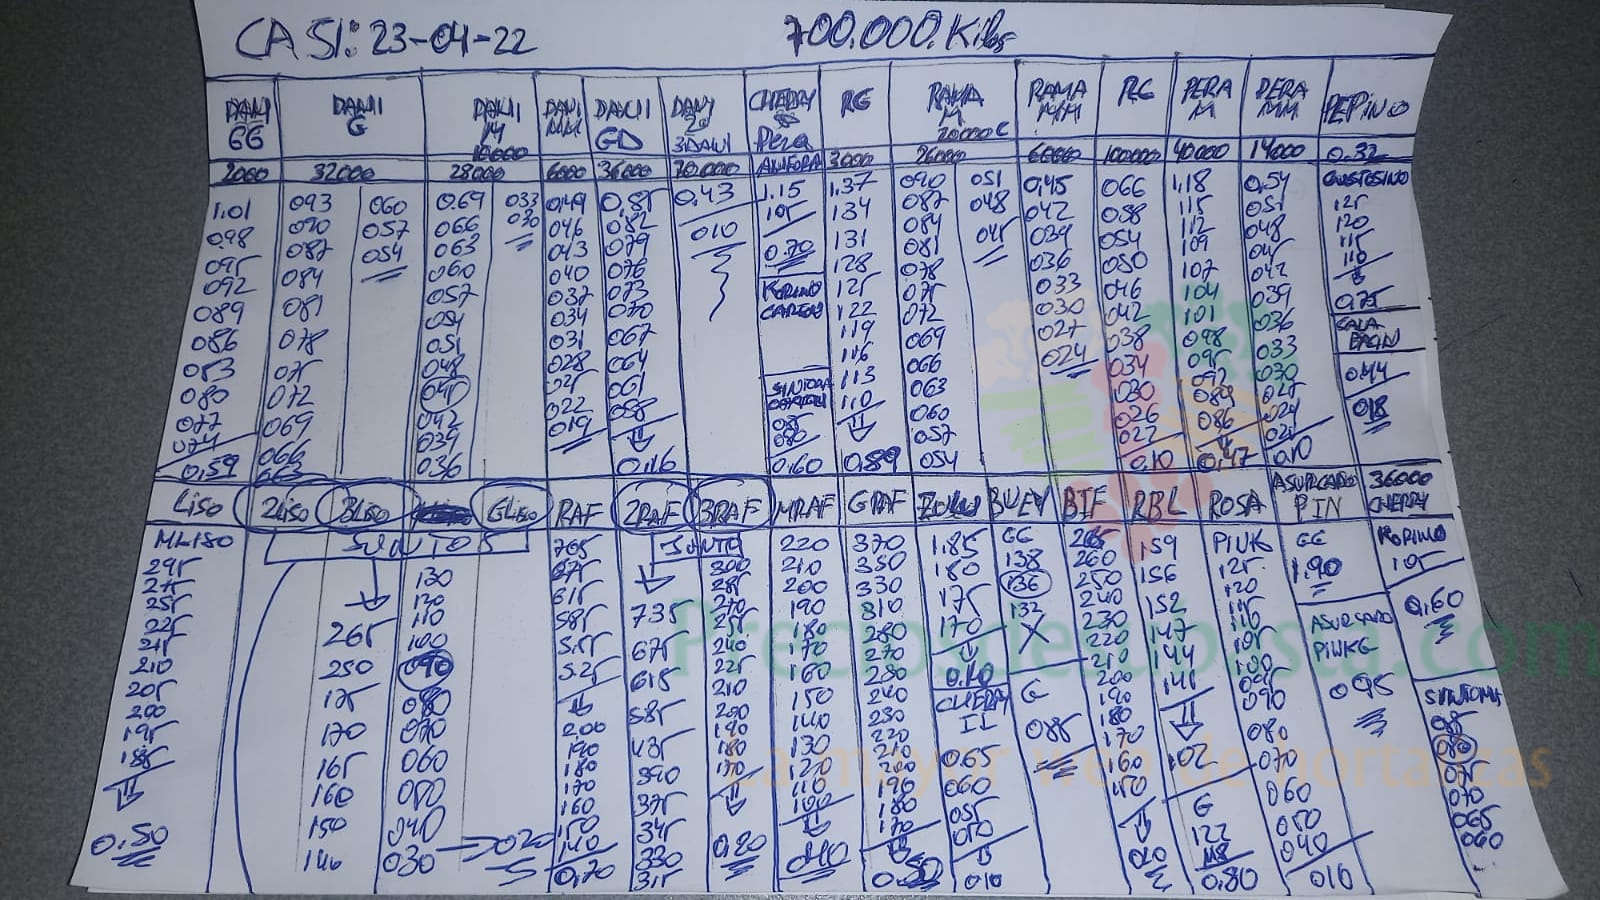 CASI: 23-04-22 700.000.Kilos
DANI GG
DANI G
DANI M 10000
DANI MM
DANI GD
DANI 2ª 3DANI
CHERRY Pera
RG
RAMA M 20000C
RAMA MM
RG
PERA M
PERA MM
PEPINO
2000 32000 28000 6000 36000 70.000 ANGORA 3000 26000 60000 100000 40000 14000 0.32
1.01
098
095
092
089
086
083
080
077
074
0,59
093
090
087
084
081
078
075
072
069
066
063
060
057
054
0.69
066
063
060
057
054
051
048
045
042
039
036
033
030
0,49
046
043
040
037
034
031
028
025
022
019
0,85
082
079
076
073
070
067
064
061
058
0,16
0,43
010
1.15
105
0.70
KORINO
SINTOMA
085
080
0,60
1,37
134
131
128
125
122
119
116
113
110
0,89
090
087
084
081
078
075
072
069
066
063
060
057
054
051
048
045
0,45
042
039
036
033
030
027
024
066
058
054
050
046
042
038
034
030
026
022
0,10
1,18
115
112
109
107
104
101
098
095
092
089
086
0,47
0,54
051
048
045
042
039
036
033
030
027
024
021
0,10
125
120
115
110
0,75
CALABACIN
0,44
018
LISO 2LISO 3LISO GLISO RAF 2RAF 3RAF MRAF GRAF BUEY BIF RBL ROSA ASURCADO PIN 36000 CHERRY
MLISO
295
275
255
225
215
210
205
200
195
185
0,50
JUNTOS
265
250
175
170
165
160
150
140
130
120
110
100
090
080
070
060
050
040
030 → 020
765
675
615
585
5.55
5.25
200
190
180
170
160
150
140
0,70
JUNTO
735
675
615
585
435
390
375
345
330
315
300
285
270
255
240
225
210
200
190
180
170
0,20
220
210
200
190
180
170
160
150
140
130
120
110
100
010
370
350
330
310
280
270
250
240
230
220
210
200
190
180
170
0.50
1.85
180
175
170
0.10
CHERRY II
065
060
055
050
010
GG
138
136
132
X
G
085
265
260
250
240
230
220
210
200
190
180
170
160
150
020
159
156
152
147
144
141
102
G
122
118
0,80
PINK
125
120
115
110
105
100
095
090
080
070
060
050
040
010
GG
1.90
ASURCADO PINKG
095
KORINO
105
0,60
SINTOMA
085
080
075
070
065
060
Preciosdesubasta.com
La mayor web de hortalizas